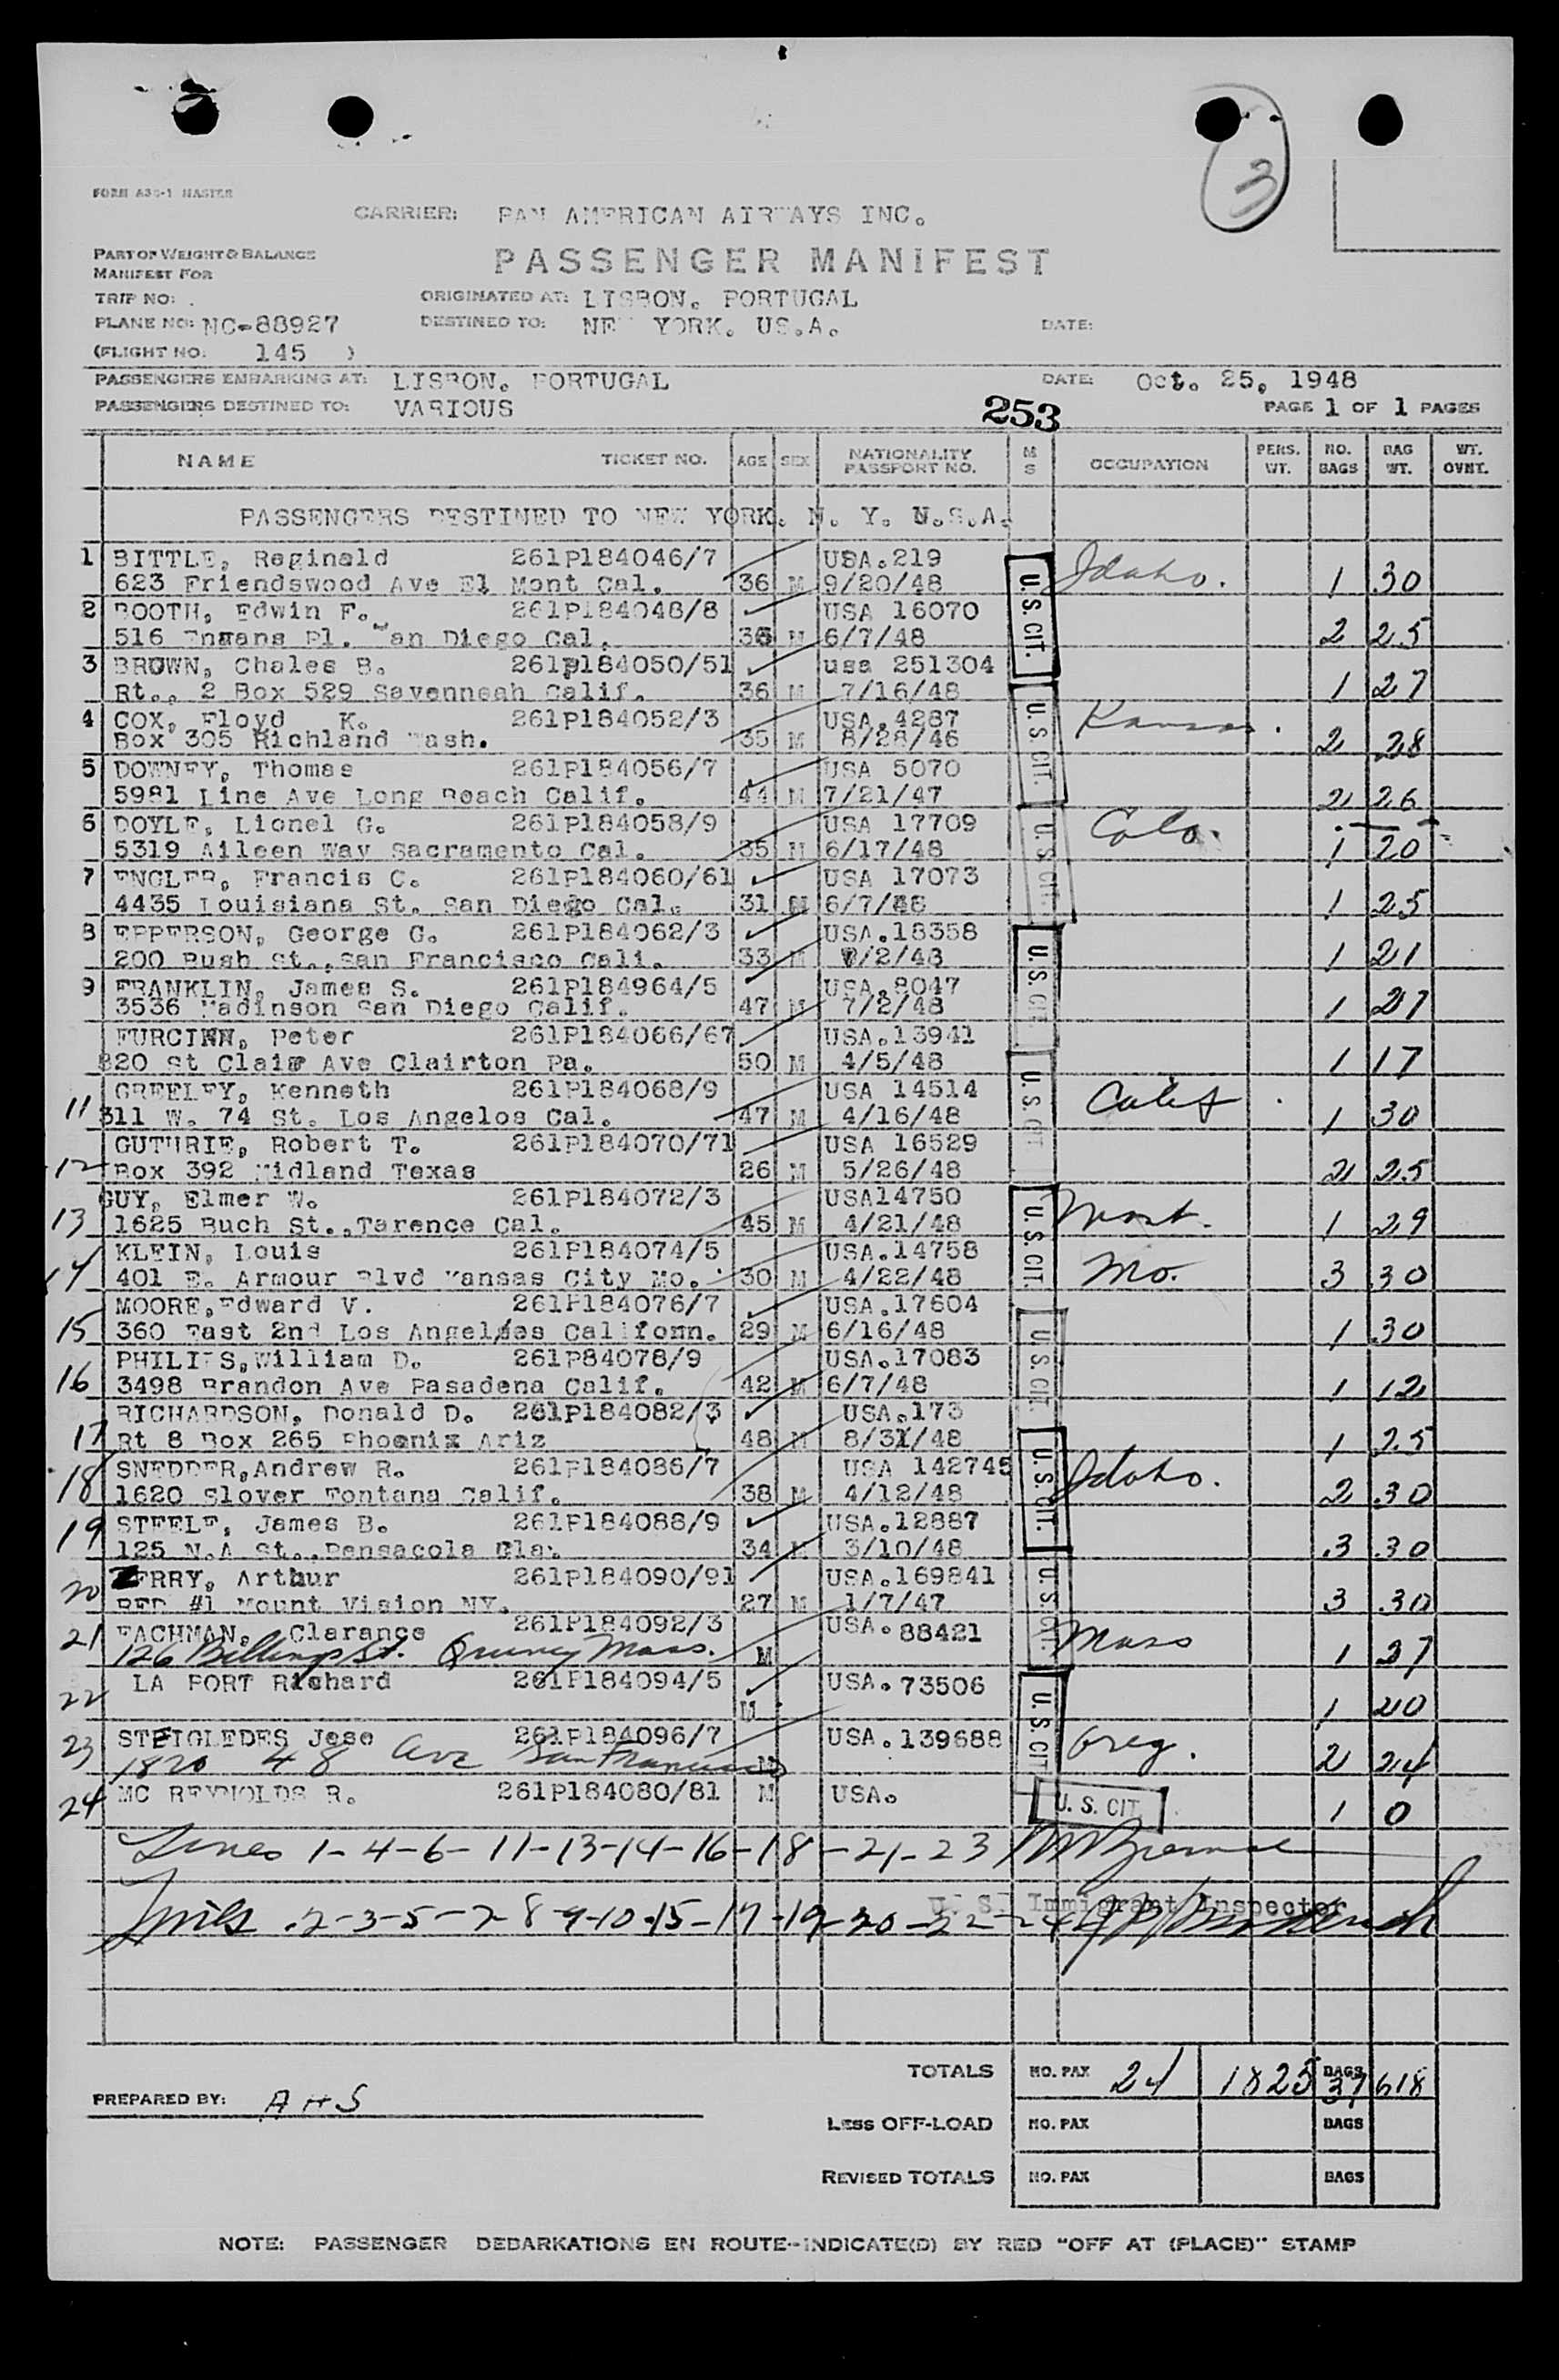 3
FORM A36-1 MASTER
CARRIER: PAN AMERICAN AIRWAYS INC.
PART OF WEIGHT & BALANCE
MANIFEST FOR
PASSENGER MANIFEST
TRIP NO: .
ORIGINATED AT: LISBON. PORTUGAL
PLANE NO: NC-88927
DESTINED TO: NEW YORK. US.A.
DATE:
(FLIGHT NO. 145 )
PASSENGERS EMBARKING AT: LISBON. PORTUGAL
DATE: Oct. 25, 1948
PASSENGERS DESTINED TO: VARIOUS
253
PAGE 1 OF 1 PAGES
NAME TICKET NO. AGE SEX NATIONALITY PASSPORT NO. M S OCCUPATION PERS. WT. NO. BAGS BAG WT. WT. OVNT.
PASSENGERS DESTINED TO NEW YORK. N. Y. U.S.A.
1 BITTLE, Reginald 261P184046/7 USA.219 U.S. CIT. Idaho.
623 Friendswood Ave El Mont Cal. 36 M 9/20/48 1 30
2 BOOTH, Edwin F. 261P184048/8 USA 16070
516 Pl. San Diego Cal. 36 M 6/7/48 2 25
3 BROWN, Chales B. 261p184050/51 usa 251304
Rt., 2 Box 529 Savenneah Calif. 36 M 7/16/48 1 27
4 COX, Floyd K. 261P184052/3 USA.4287 U.S. CIT. Kansas.
Box 305 Richland Wash. 35 M 8/28/46 2 28
5 DOWNEY, Thomas 261P184056/7 USA 5070
5981 Line Ave Long Beach Calif. 44 M 7/21/47 2 26
6 DOYLE, Lionel G. 261P184058/9 USA 17709 U.S. CIT. Colo.
5319 Aileen Way Sacramento Cal. 35 M 6/17/48 1 20
7 ENGLER, Francis C. 261P184060/61 USA 17073
4435 Louisiana St. San Diego Cal. 31 M 6/7/48 1 25
8 EPPERSON, George G. 261P184062/3 USA.18358 U.S. CIT.
200 Bush St., San Francisco Cali. 33 M 7/2/48 1 21
9 FRANKLIN, James S. 261P184964/5 USA.8047
3536 Madinson San Diego Calif. 47 M 7/2/48 1 27
FURCINN, Peter 261P184066/67 USA.13941
820 St Clair Ave Clairton Pa. 50 M 4/5/48 1 17
GREELEY, Kenneth 261P184068/9 USA 14514 U.S. CIT. Calif.
11 311 W. 74 St. Los Angelos Cal. 47 M 4/16/48 1 30
GUTHRIE, Robert T. 261P184070/71 USA 16529
12 Box 392 Midland Texas 26 M 5/26/48 2 25
GUY, Elmer W. 261P184072/3 USA14750 U.S. CIT. Mont.
13 1625 Buch St., Tarence Cal. 45 M 4/21/48 1 29
KLEIN, Louis 261P184074/5 USA.14758
14 401 E. Armour Blvd Kansas City Mo. 30 M 4/22/48 Mo. 3 30
MOORE, Edward V. 261P184076/7 USA.17604 U.S. CIT.
15 360 East 2nd Los Angeles Califonn. 29 M 6/16/48 1 30
PHILIPS, William D. 261P84078/9 USA.17083
16 3498 Brandon Ave Pasadena Calif. 42 M 6/7/48 1 12
RICHARDSON, Donald D. 261P184082/3 USA.173
17 Rt 8 Box 265 Phoenix Ariz 48 M 8/31/48 1 25
SNEDDER, Andrew R. 261P184086/7 USA 142745 U.S. CIT. Idaho.
18 1620 Slover Fontana Calif. 38 M 4/12/48 2 30
STEELE, James B. 261P184088/9 USA.12887
19 125 N.A St., Pensacola Fla. 34 M 3/10/48 3 30
TERRY, Arthur 261P184090/91 USA.169841 U.S. CIT.
20 RFD #1 Mount Vision NY. 27 M 1/7/47 3 30
EACHMAN, Clarance 261P184092/3 USA.88421
21 126 Billings St. Quincy Mass. M Mass 1 27
LA PORT Richard 261P184094/5 USA.73506 U.S. CIT
22 M 1 20
STEIGLEDES Jese 261P184096/7 USA.139688
23 1820 48 Ave San Francisco M Oreg. 2 24
24 MC REYNOLDS R. 261P184080/81 M USA. U. S. CIT. 1 0
Lines 1-4-6-11-13-14-16-18-21-23
U. S. Immigrant Inspector
2-3-5-7-8-9-10-15-17-19-20-22-24
TOTALS NO. PAX 24 1825 BAGS 37 618
PREPARED BY: AHS
Less OFF-LOAD NO. PAX BAGS
REVISED TOTALS NO. PAX BAGS
NOTE: PASSENGER DEBARKATIONS EN ROUTE--INDICATE(D) BY RED "OFF AT (PLACE)" STAMP